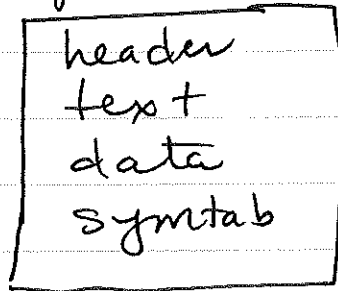 header
text
data
symtab